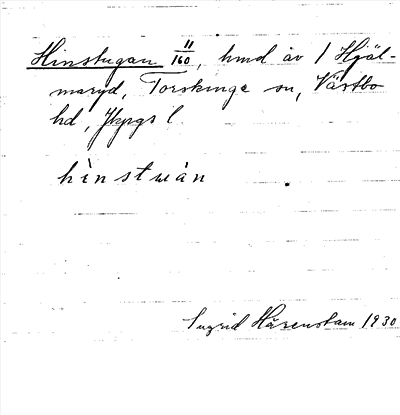 Hinstugan 11/160, hmd av 1 Hjäl-
maryd, Torskinge sn, Västbo
hd, Jkpgs l
hinstuån
Ingrid Härenstam 1930